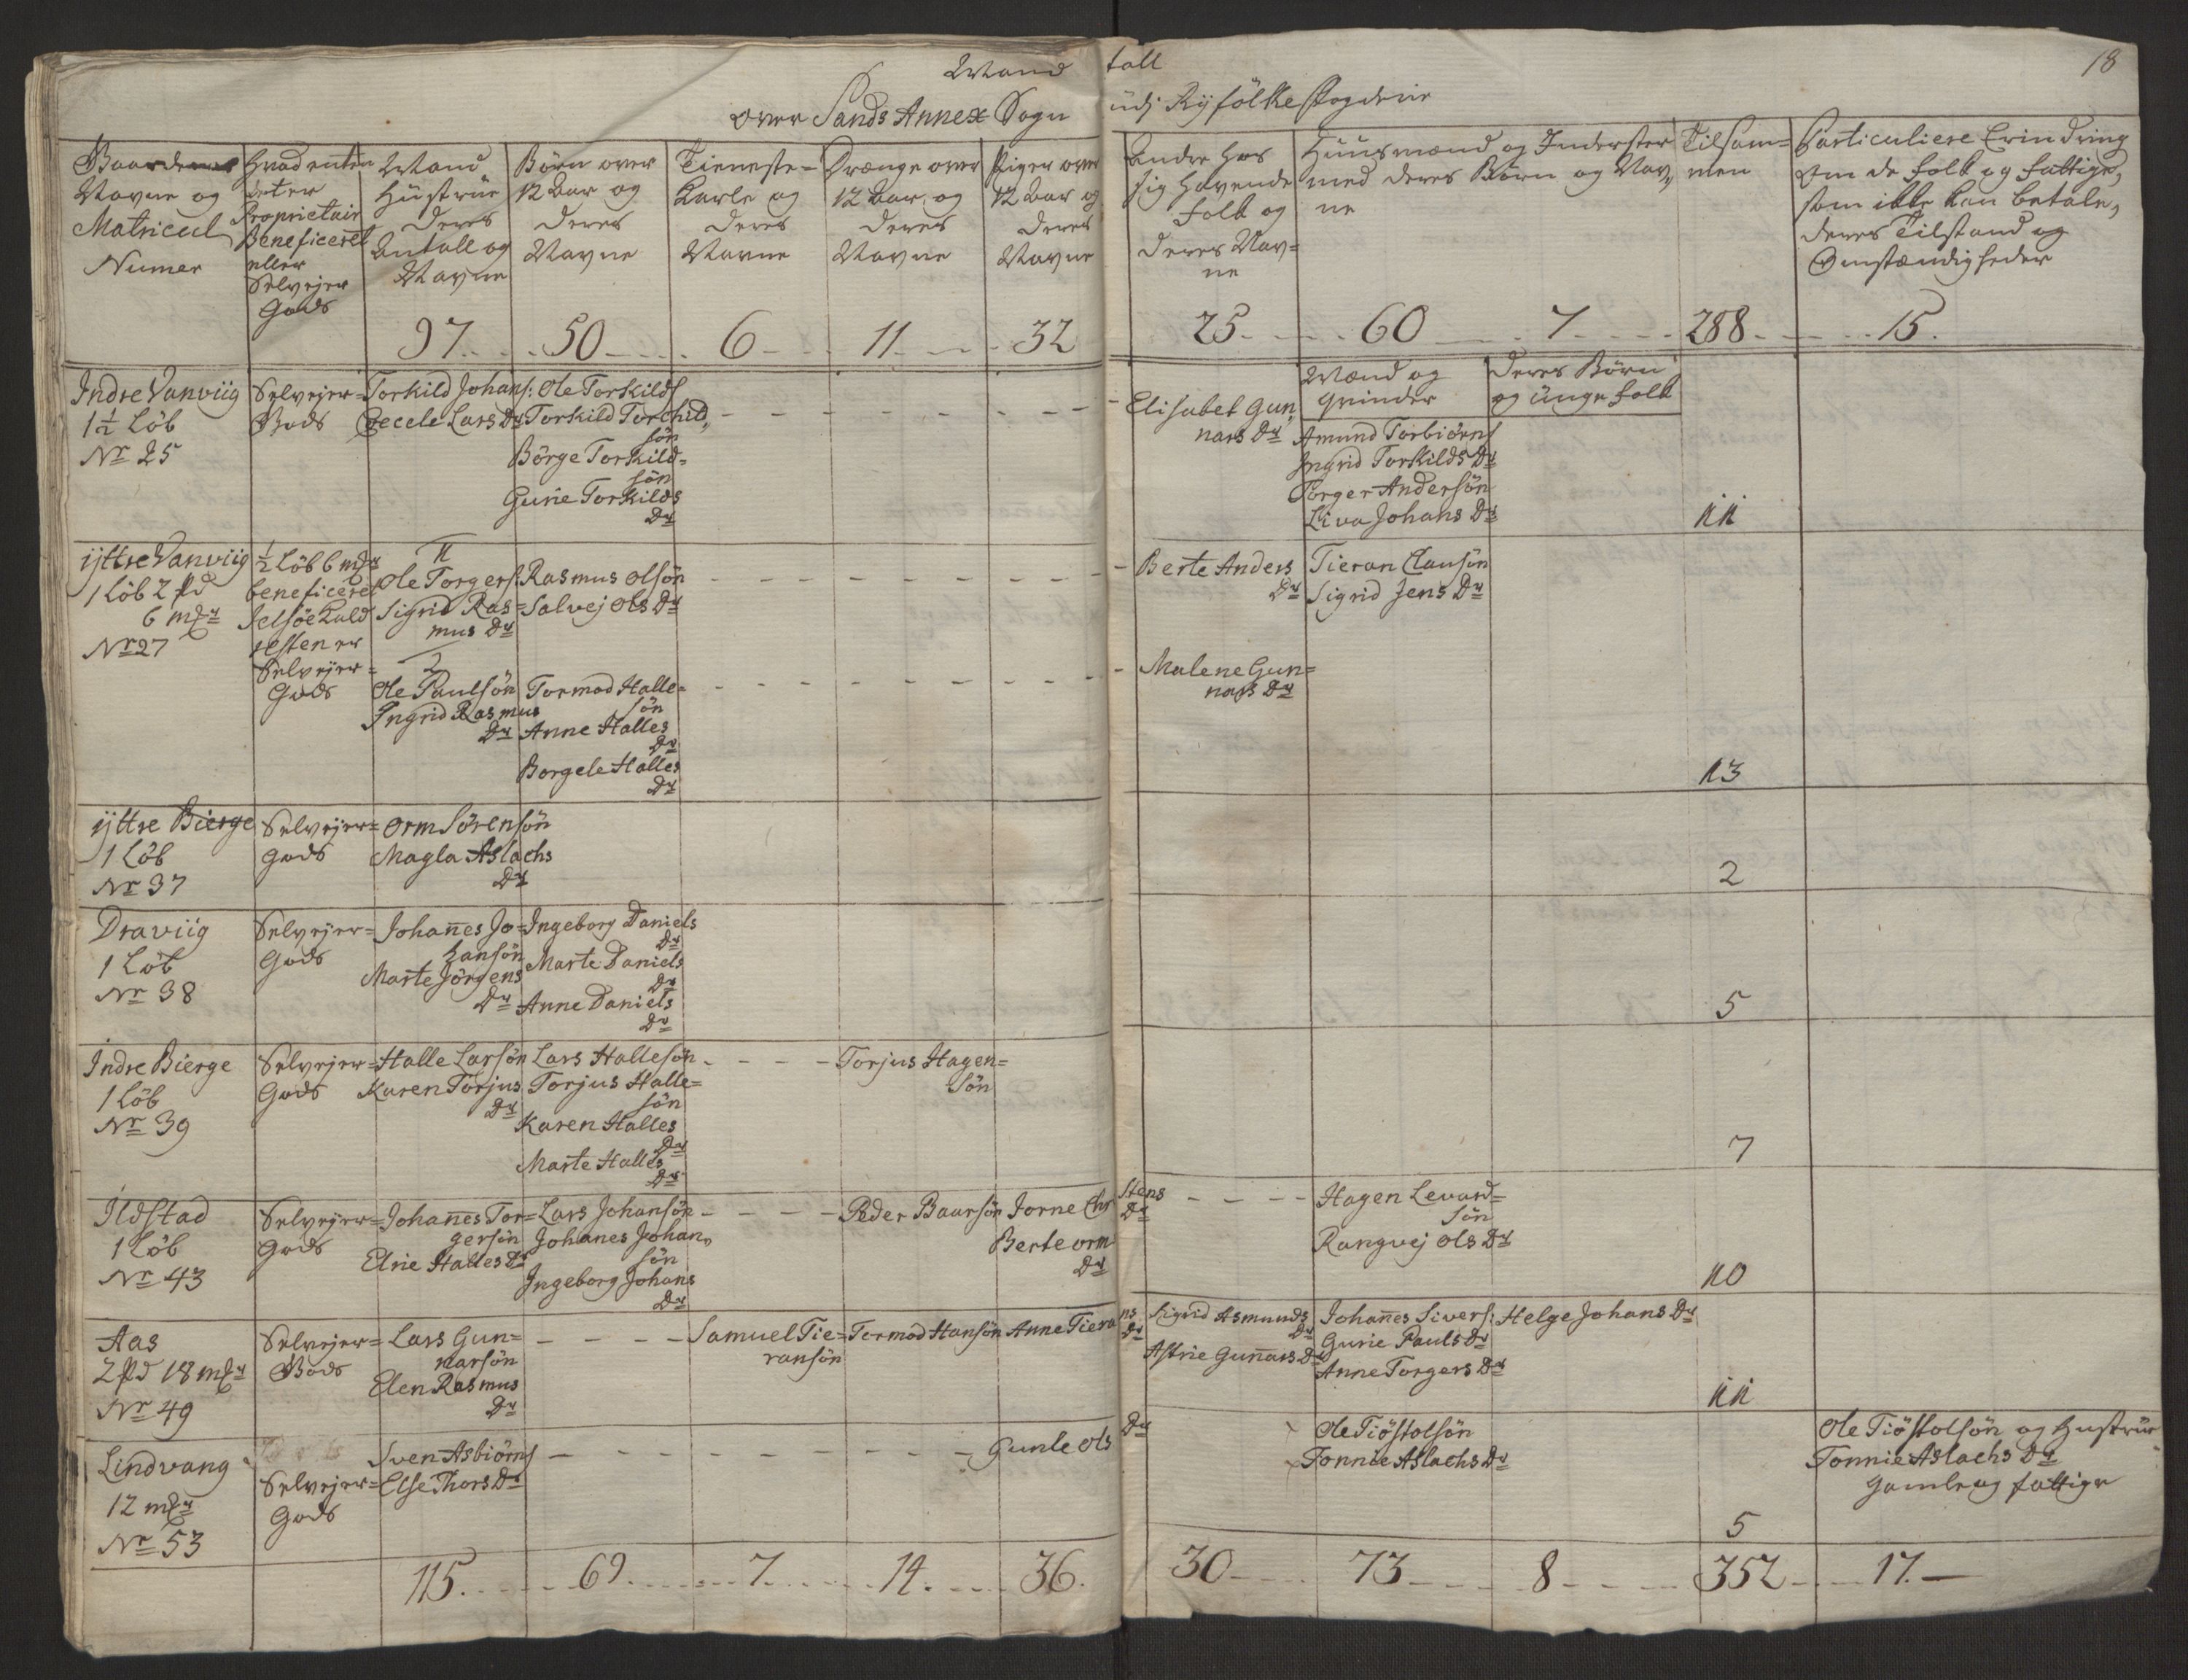 Mand tall
18
over Sands Annex Sogn udj Ryfölke Fogderie
Gaardenes Navne og Matricul Numer
Hvad enten det er Proprietair Beneficeret eller Selvejer Gods
Mand Hustrue deres Antall og Navne
Börn over 12 Aar og deres Navne
Tieneste= Karle og deres Navne
Drænge over 12 Aar og deres Navne
Piger over 12 Aar og deres Navne
Andre hos sig havende folk og deres Nav= ne
Huusmænd og Inderster med deres Börn og Nav, ne
Tilsam= men
Particuliere Erindring om de folk og fattige, som ikke kan betale, deres Tilstand og Omstændigheder
97 50 6 11 32 25 60 7 288 15.
Mænd og qvinder
deres Börn og unge folk
Indre Vanviig
1½ Löb
Nr 25
Selvejer=
Gods
Torkild Johans:
Zecele Lars Dr
Ole Torkilds
Torkild Torchild,
sön
Börge Torkild=
sön
Gurie Torkilds
Dr
Elisabet Gun,
nars Dr
Amund Torbiörns
Ingrid Torkilds Dr
Torger Andersön
Liva Johans Dr
11
ÿttre Vanviig
1 Löb 2 pd
6 mkr
Nr 27
½ Löb 6 mkr
beneficeret
Jelsöe Kald
resten er
Selvejer=
Gods
1
Ole Torgers:
Sigrid Ras=
mus Dr
Rasmus Olsön
Salvej Ols Dr
Berte Anders
Dr
Tieran Clausön
Sigrid Jens Dr
2
Ole Paulsön
Ingrid Rasmus
Dr
Tormod Halle=
sön
Anne Halles
Dr
Borgele Halles
Dr
Malene Gun=
nars Dr
13
ÿttre Bierge
1 Löb
Nr 37
Selvejer=
Gods
Orm Sörensön
Magla Aslachs
Dr
2
Draviig
1 Löb
Nr 38
Selvejer=
Gods
Johañes Jo=
hansön
Marte Jörgens
Dr
Ingeborg Daniels
Dr
Marte Daniels
Dr
Anne Daniels
Dr
5
Indre Bierge
1 Löb
Nr 39
Selvejer=
Gods
Halle Larsön
Karen Torjus
Dr
Lars Hallesön
Torjus Halle=
sön
Karen Halles
Dr
Marte Halles
Dr
Torjus Hagen=
sön
7
Ildstad
1 Löb
Nr 43
Selvejer=
Gods
Johañes Tor=
gersön
Elie Halles Dr
Lars Johansön
Johanes Johan,
sön
Ingeborg Johans
Dr
Peder Baarsön
Jorne Chr stens
Dr
Berte Orm
Dr
Hagen Levard=
sön
Rangvej Ols Dr
10
Aas
2 pd 18 mkr
Nr 49
Selvejer=
Gods
Lars Gun=
narsön
Elen Rasmus
Dr
Samuel Tie=
ransön
Tormod Hansön
Anne Tierans
Dr
Sigrid Asmunds
Dr
Astrie Guñars Dr
Johañes Sivers:
Gurie Pauls Dr
Anne Torgers Dr
Helge Johans Dr
11
Lindvang
12 mkr
Nr 53
Selvejer=
Gods
Sven Asbiörns
Else Thors Dr
Gunle Ols Dr
Ole Tiöstolsön
Tonnie Aslachs Dr
5
Ole Tiöstolsön og Hustrue
Tonnie Aslachs Dr
gamle og fattige
115. 69 7 14 36. 30 73 8 352 17.